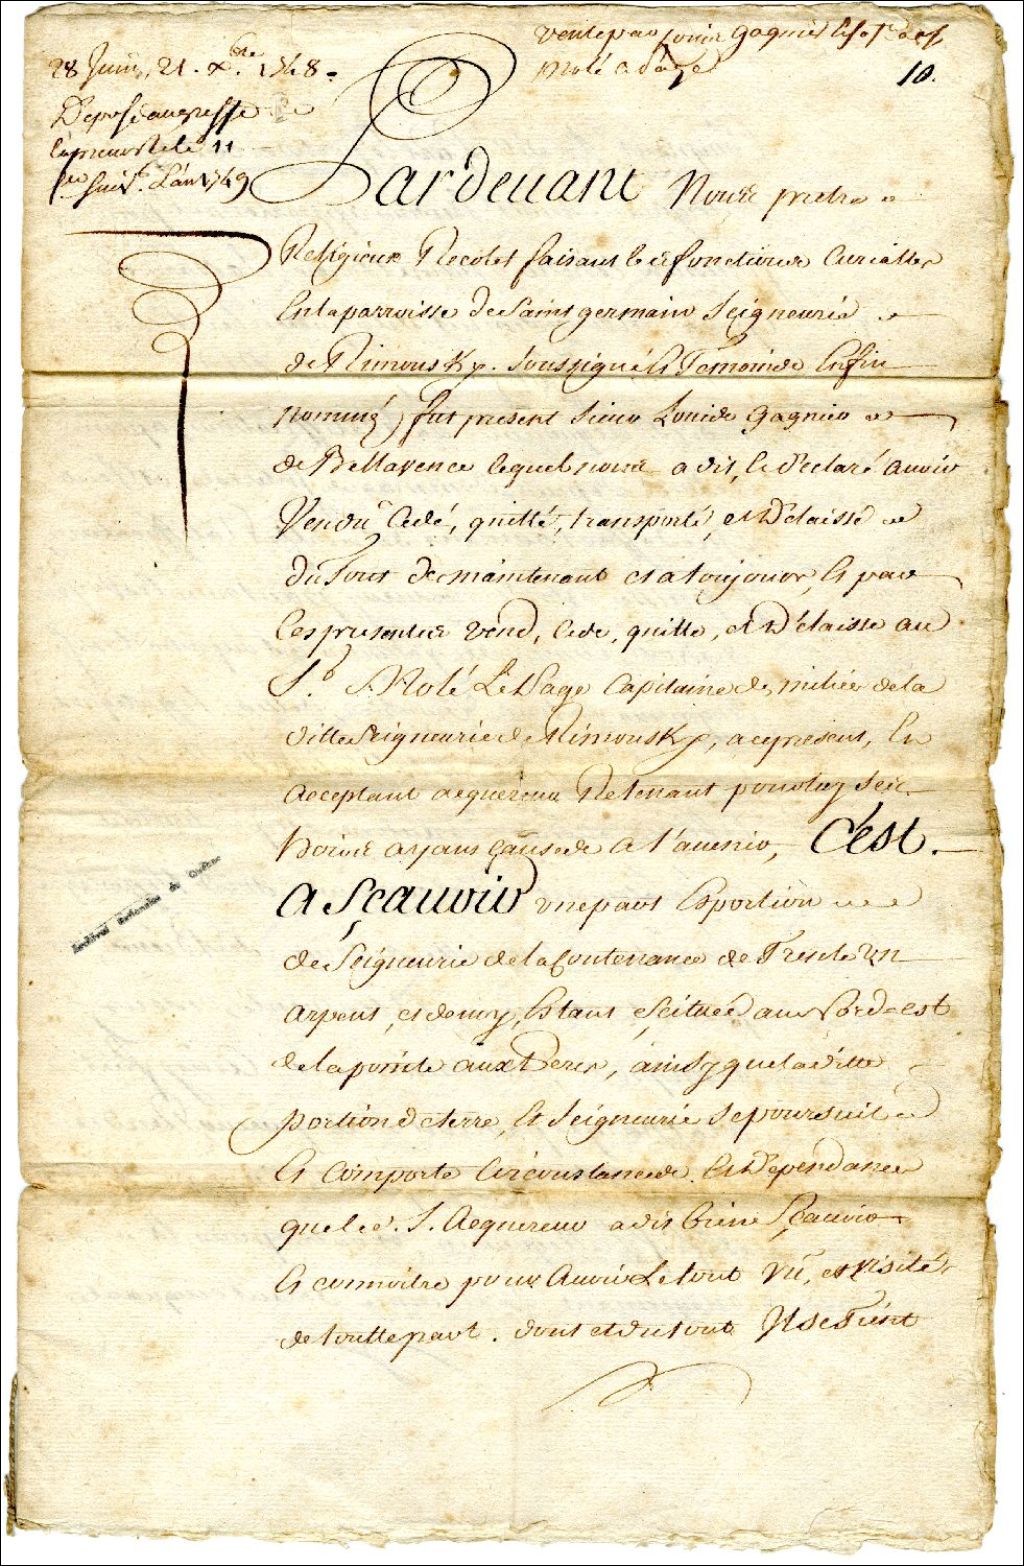 vente par Louis Gagnier
Molé a
10.
28 Juin, 21. xbre 1748.
Deposé au greffe
le 11
Juin. L'an 1749
Pardeuant Nous pretre
Religieux Recolet faisant les fonctions Curialles
En la parroisse de Saint germain Seigneurie
de Rimousky. Soussigné Et Temoins Enfin
nommés, fut present Sieur Louis Gagnier
de Bellavence lequel nous a dit, Et declaré auoir
Vendu Cedé, quitté, transporté, et Delaissé
du Tout de maintenant et a Toujours, Et par
Ces presentes vend, Cede, quitte, et Delaisse au
Sr. Molé LePage Capitaine de milice de la
ditte Seigneurie de Rimousky, a ce present, Et
acceptant acquereur Retenant pour luy ses
hoirs ayans Cause a l'auenir, C'est
A Sçauoir une part Et portion
de Seigneurie de la Contenance de Trente Un
arpent, et demy, Estant Scituée au Nord-est
de la pointe aux Peres, ainsy que la ditte
portion de terre, Et Seigneurie se poursuit
Et Comporte Circonstances Et Dependances
que le d. S. Acquereur a dit bien Sçauoir
Et connoitre pour Auoir Le tout vû, et visité
de toutte part. dont et du tout Il se Tient